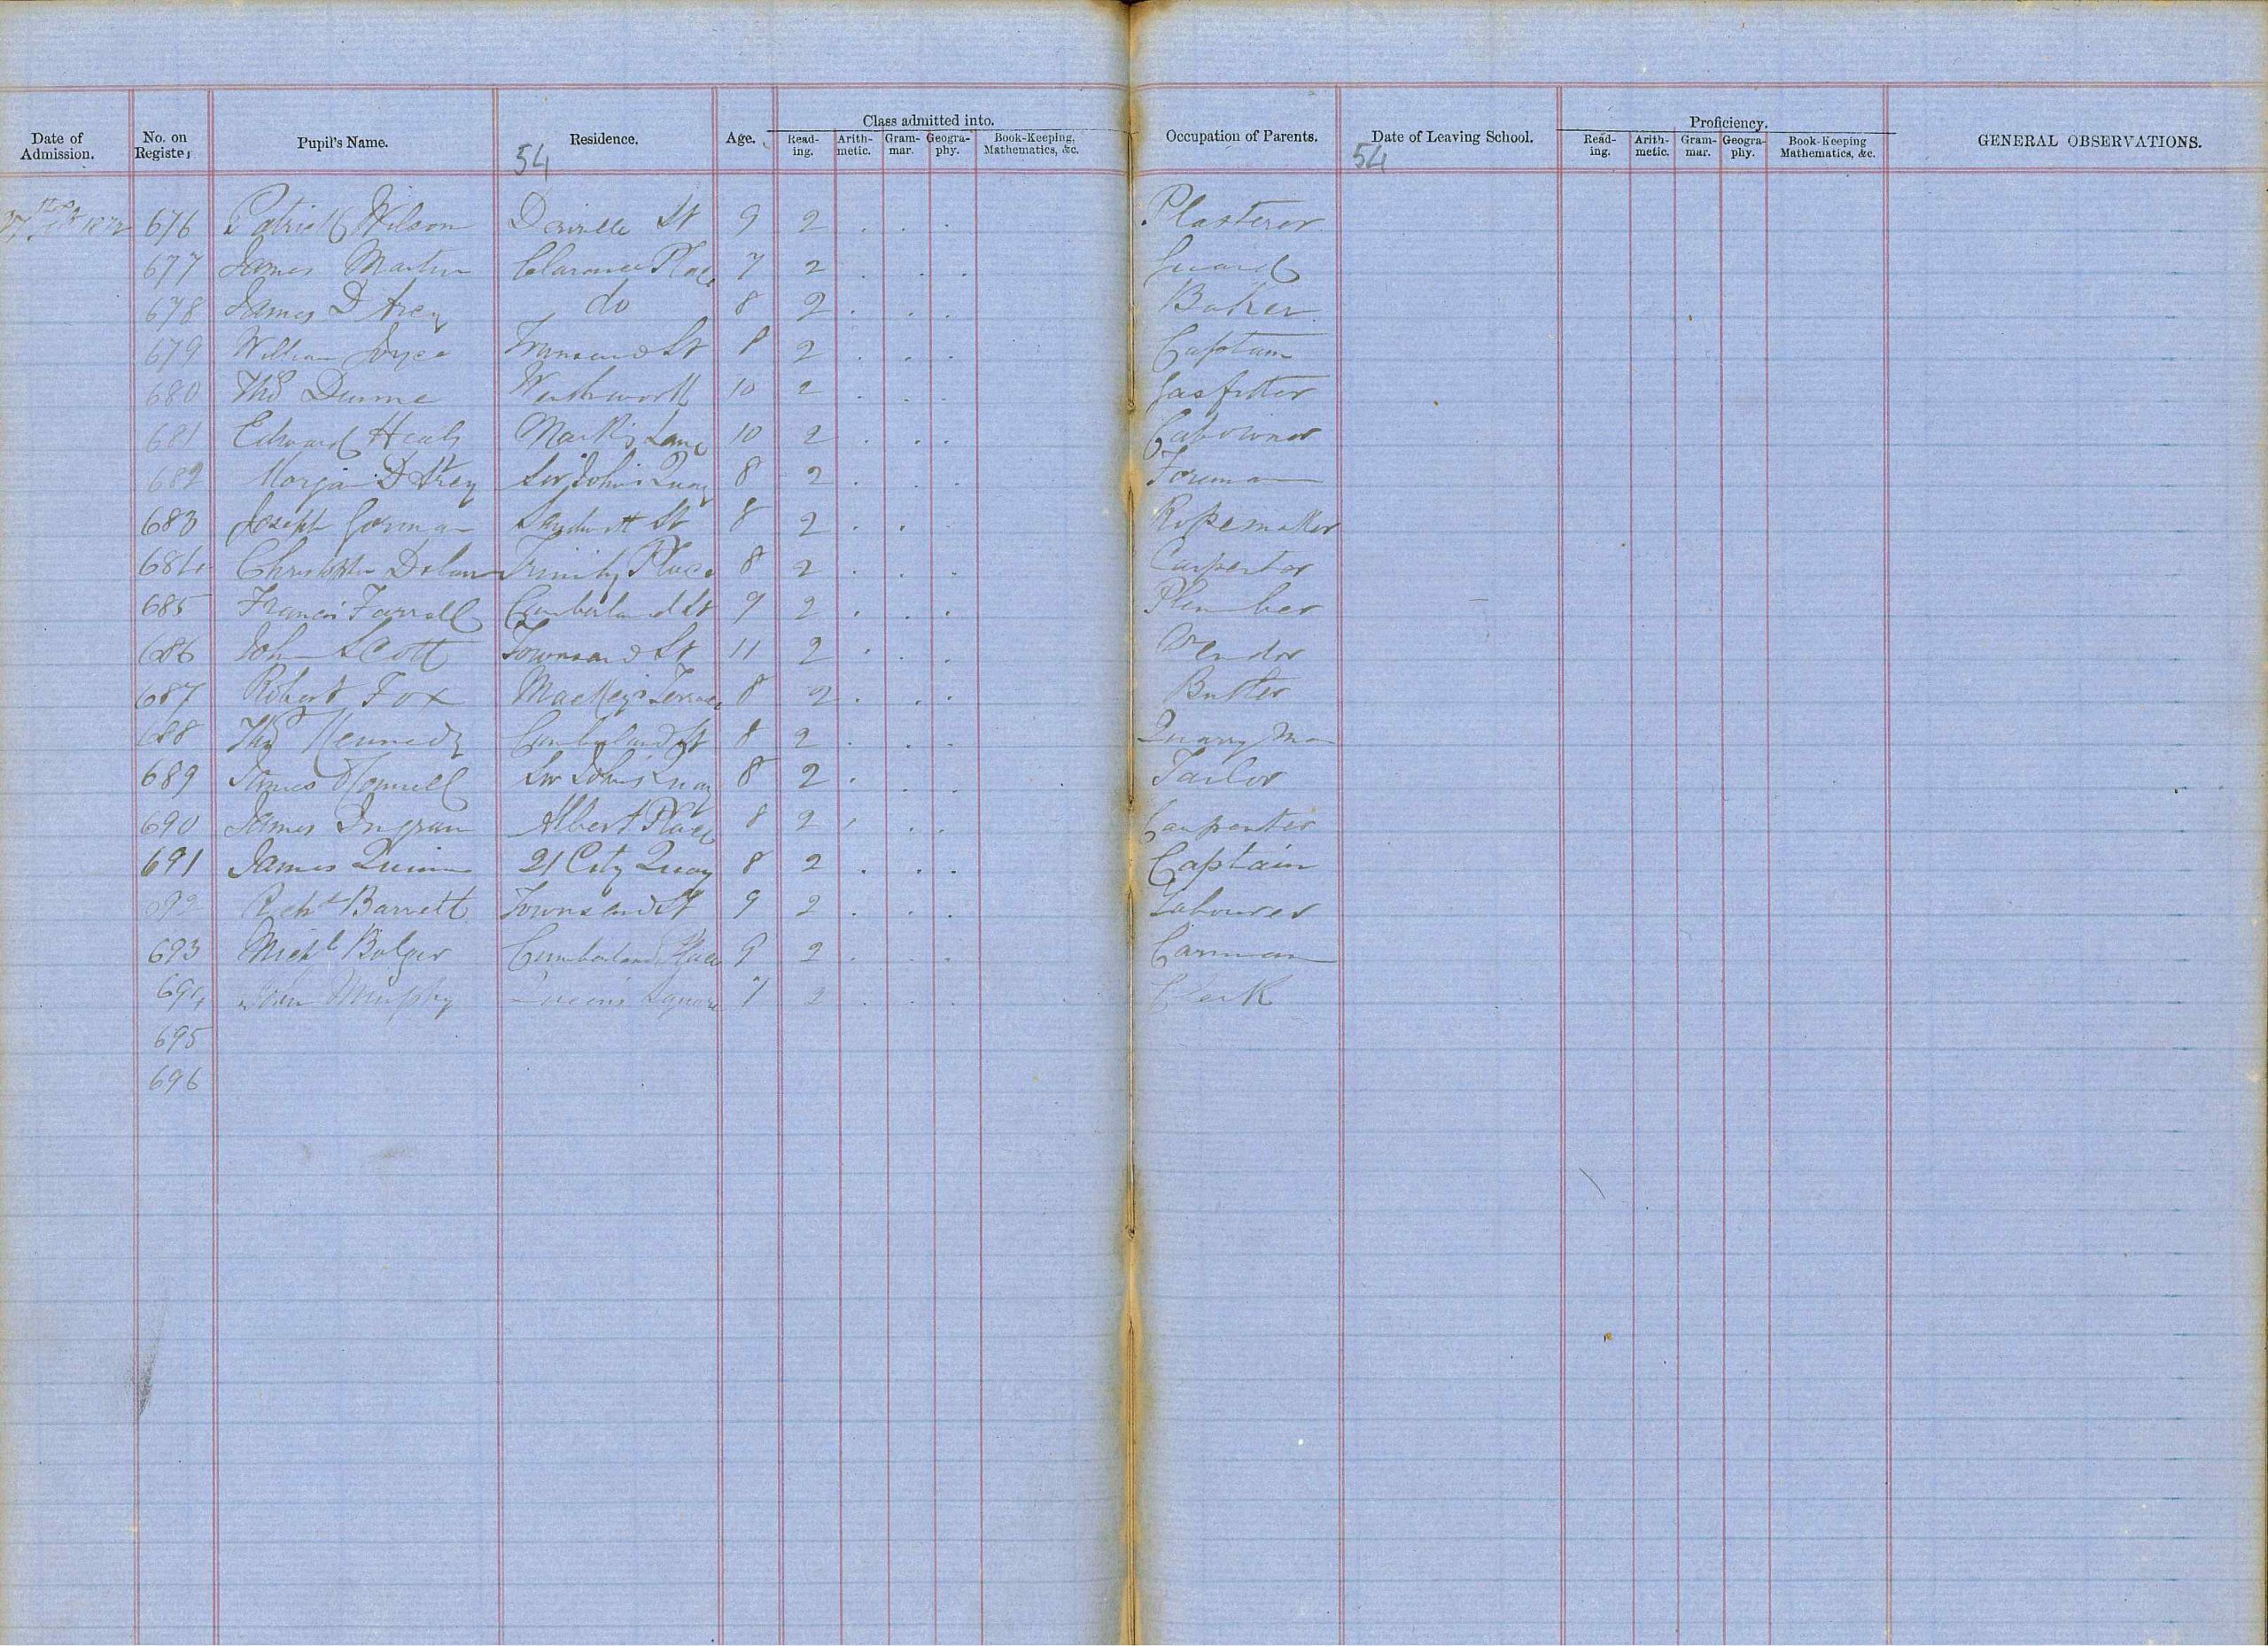 Class admitted into. Proficiency.
Date of Admission. No. on Register Pupil's Name. Residence. Age. Read- ing. Arith- metic. Gram- mar. Geogra- phy. Book-Keeping, Mathematics, &c. Occupation of Parents. Date of Leaving School. Read- ing. Arith- metic. Gram- mar. Geogra- phy. Book-Keeping Mathematics, &c. GENERAL OBSERVATIONS.
54 54
676 Patrick Wilson St 9 2 . . . Plasterer
677 James Martin Clarence Place 7 2 . . . Guard
678 James D Arcy do 8 2 . . . Baker
679 William Joyce St 8 2 . . . Captain
680 Thos Dunne 10 2 . . . Gasfitter
681 Edward Healy Mark's Lane 10 2 . . . Cabowner
682 Morgan D Arcy Sir John's Quay 8 2 . . . Foreman
683 Joseph Gorman Sandwith St 8 2 . . . Ropemaker
684 Christopher Dolan Trinity Place 8 2 . . . Carpenter
685 Francis Farrell Cumberland St 9 2 . . . Plumber
686 John Scott Townsend St 11 2 . . . Vendor
687 Robert Fox Mackey's Terrace 8 2 . . . Butler
688 Thos Kennedy Cumberland St 8 2 . . . Quarry Man
689 James Sir John's Quay 8 2 . . . Tailor
690 James Ingram Albert Place 8 2 . . . Carpenter
691 James Quinn 21 City Quay 8 2 . . . Captain
692 Richd Barrett Townsend St 9 2 . . . Labourer
693 Michl Bolger Cumberland Place 9 2 . . . Carman
694 John Murphy Queen's Square 7 2 . . . Clerk
695
696